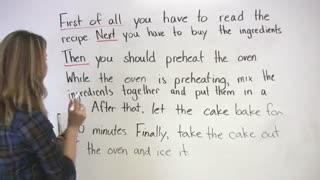 First of all you have to read the
recipe Next you have to buy the ingredients
Then you should preheat the oven
While the oven is preheating, mix the
ingredients together and put them in a
After that, let the cake bake for
0 minutes Finally, take the cake out
the oven and ice it.